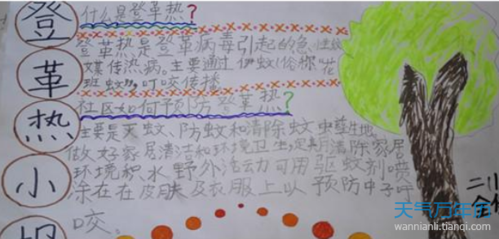 登
革
热
小
报
什么是登革热?
登革热是登革病毒引起的急性蚊
媒传热病。主要通过伊蚊(俗称"花
斑蚊")叮咬传播
社区如何预防登革热?
主要是灭蚊、防蚊和清除蚊虫孳生地
做好家居清洁和环境卫生,定期清除家居
环境积水野外活动可用驱蚊剂喷
涂在在皮肤及衣服上以预防
咬。
天气万年历
wannianli.tianqi.com